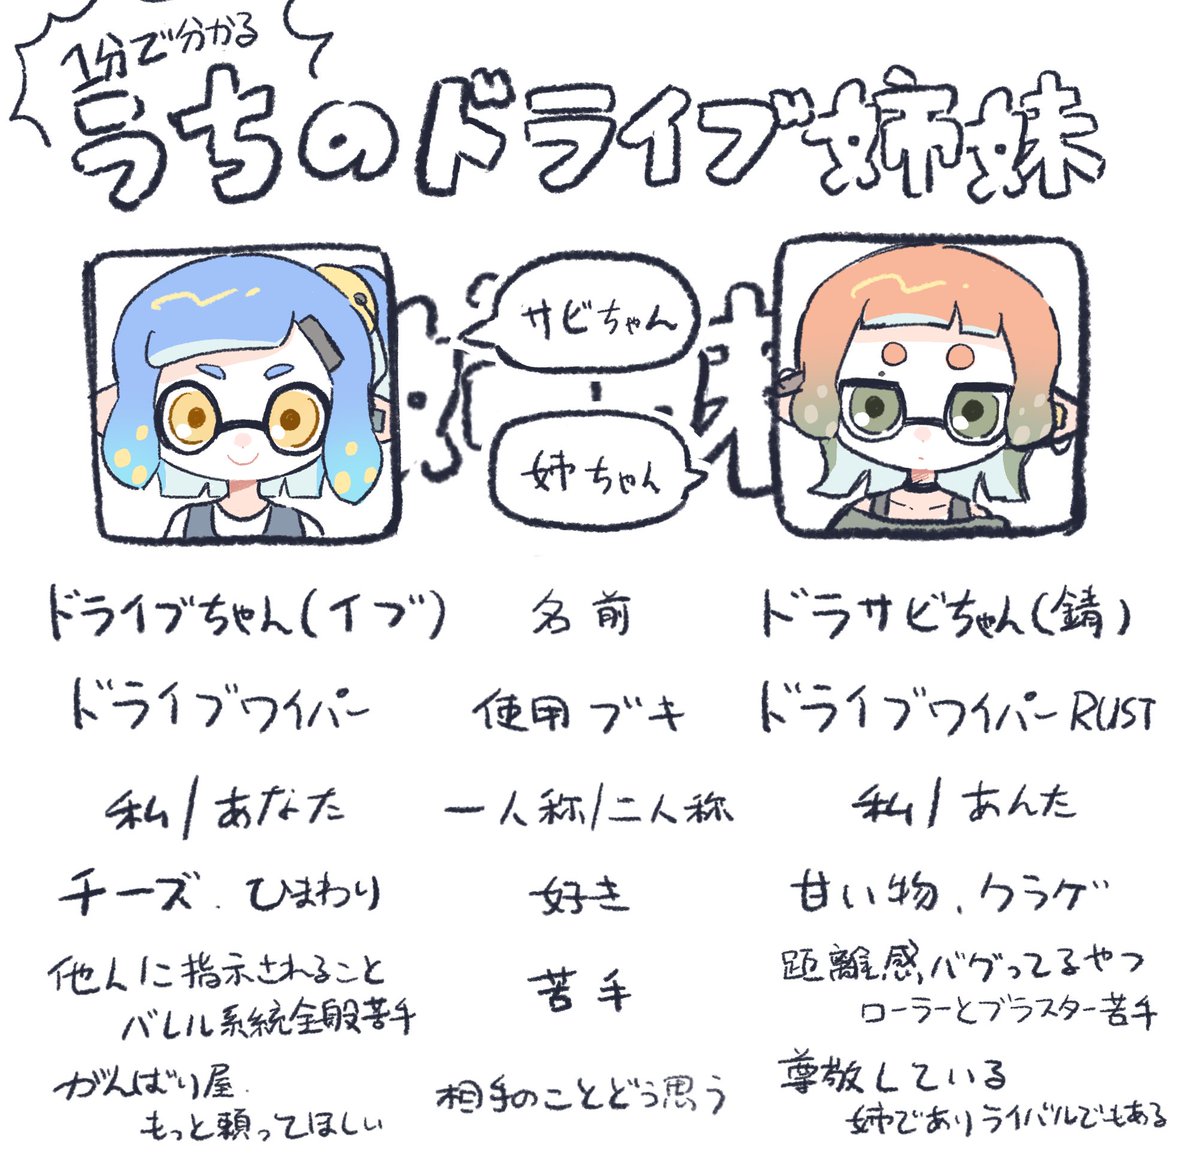 1分で分かる
うちのドライブ姉妹
サビちゃん
姉ちゃん
ドライブちゃん(イブ) 名前 ドラサビちゃん(錆)
ドライブワイパー 使用ブキ ドライブワイパーRUST
私/あなた 一人称/二人称 私/あんた
チーズ、ひまわり 好き 甘い物、クラゲ
他人に指示されること
バレル系統全般苦手
苦手
距離感バグってるやつ
ローラーとブラスター苦手
がんばり屋。
もっと頼ってほしい
相手のことどう思う
尊敬している
姉でありライバルでもある